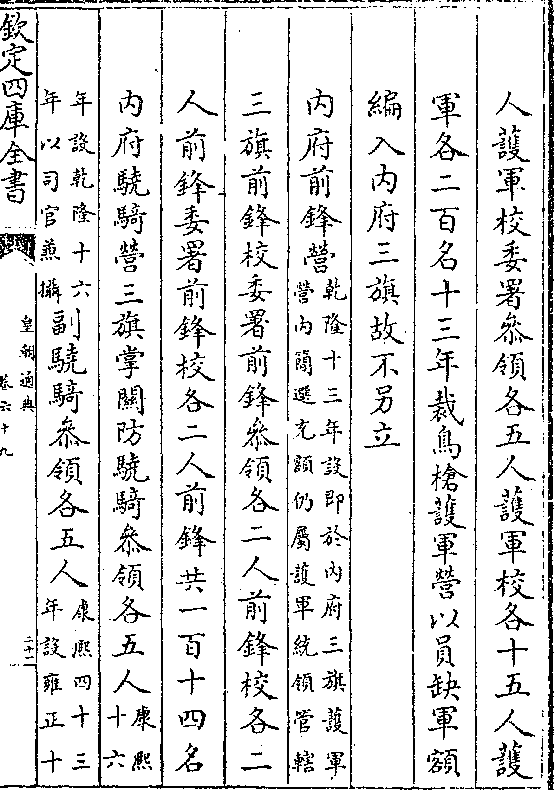 人䕶軍校委署叅領各五人䕶軍校各十五人䕶
軍各二百名十三年裁鳥槍䕶軍營以員缺軍額
編入内府三旗故不另立
内府前鋒營乾隆十三年設即於内府三旗䕶軍
營内簡選充額仍屬䕶軍統領管轄
三旗前鋒校委署前鋒叅領各二人前鋒校各二
人前鋒委署前鋒校各二人前鋒共一百十四名
内府驍騎營三旗掌關防驍騎叅領各五人康熙
十六
年設乾隆十六
年以司官兼攝副驍騎叅領各五人康熙四十三
年設雍正十
欽定四庫全書
皇朝通典
卷六十九
二十一